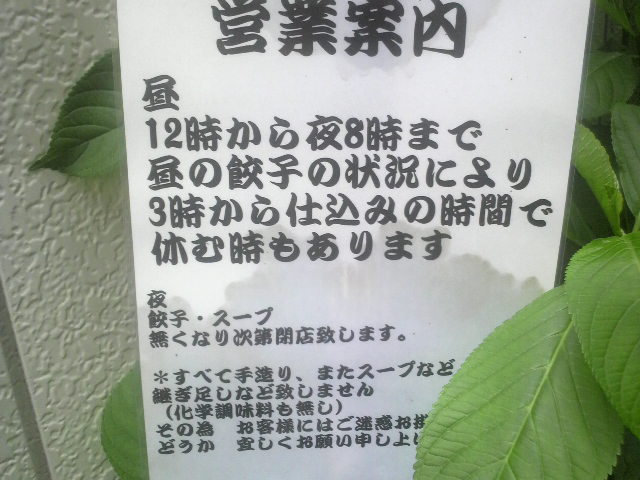 営業案内
昼
12時から夜8時まで
昼の餃子の状況により
3時から仕込みの時間で
休む時もあります
夜
餃子・スープ
無くなり次第閉店致します。
＊すべて手造り、またスープなど
継ぎ足しなど致しません
（化学調味料も無し）
その為　お客様にはご迷惑お掛
どうか　宜しくお願い申し上